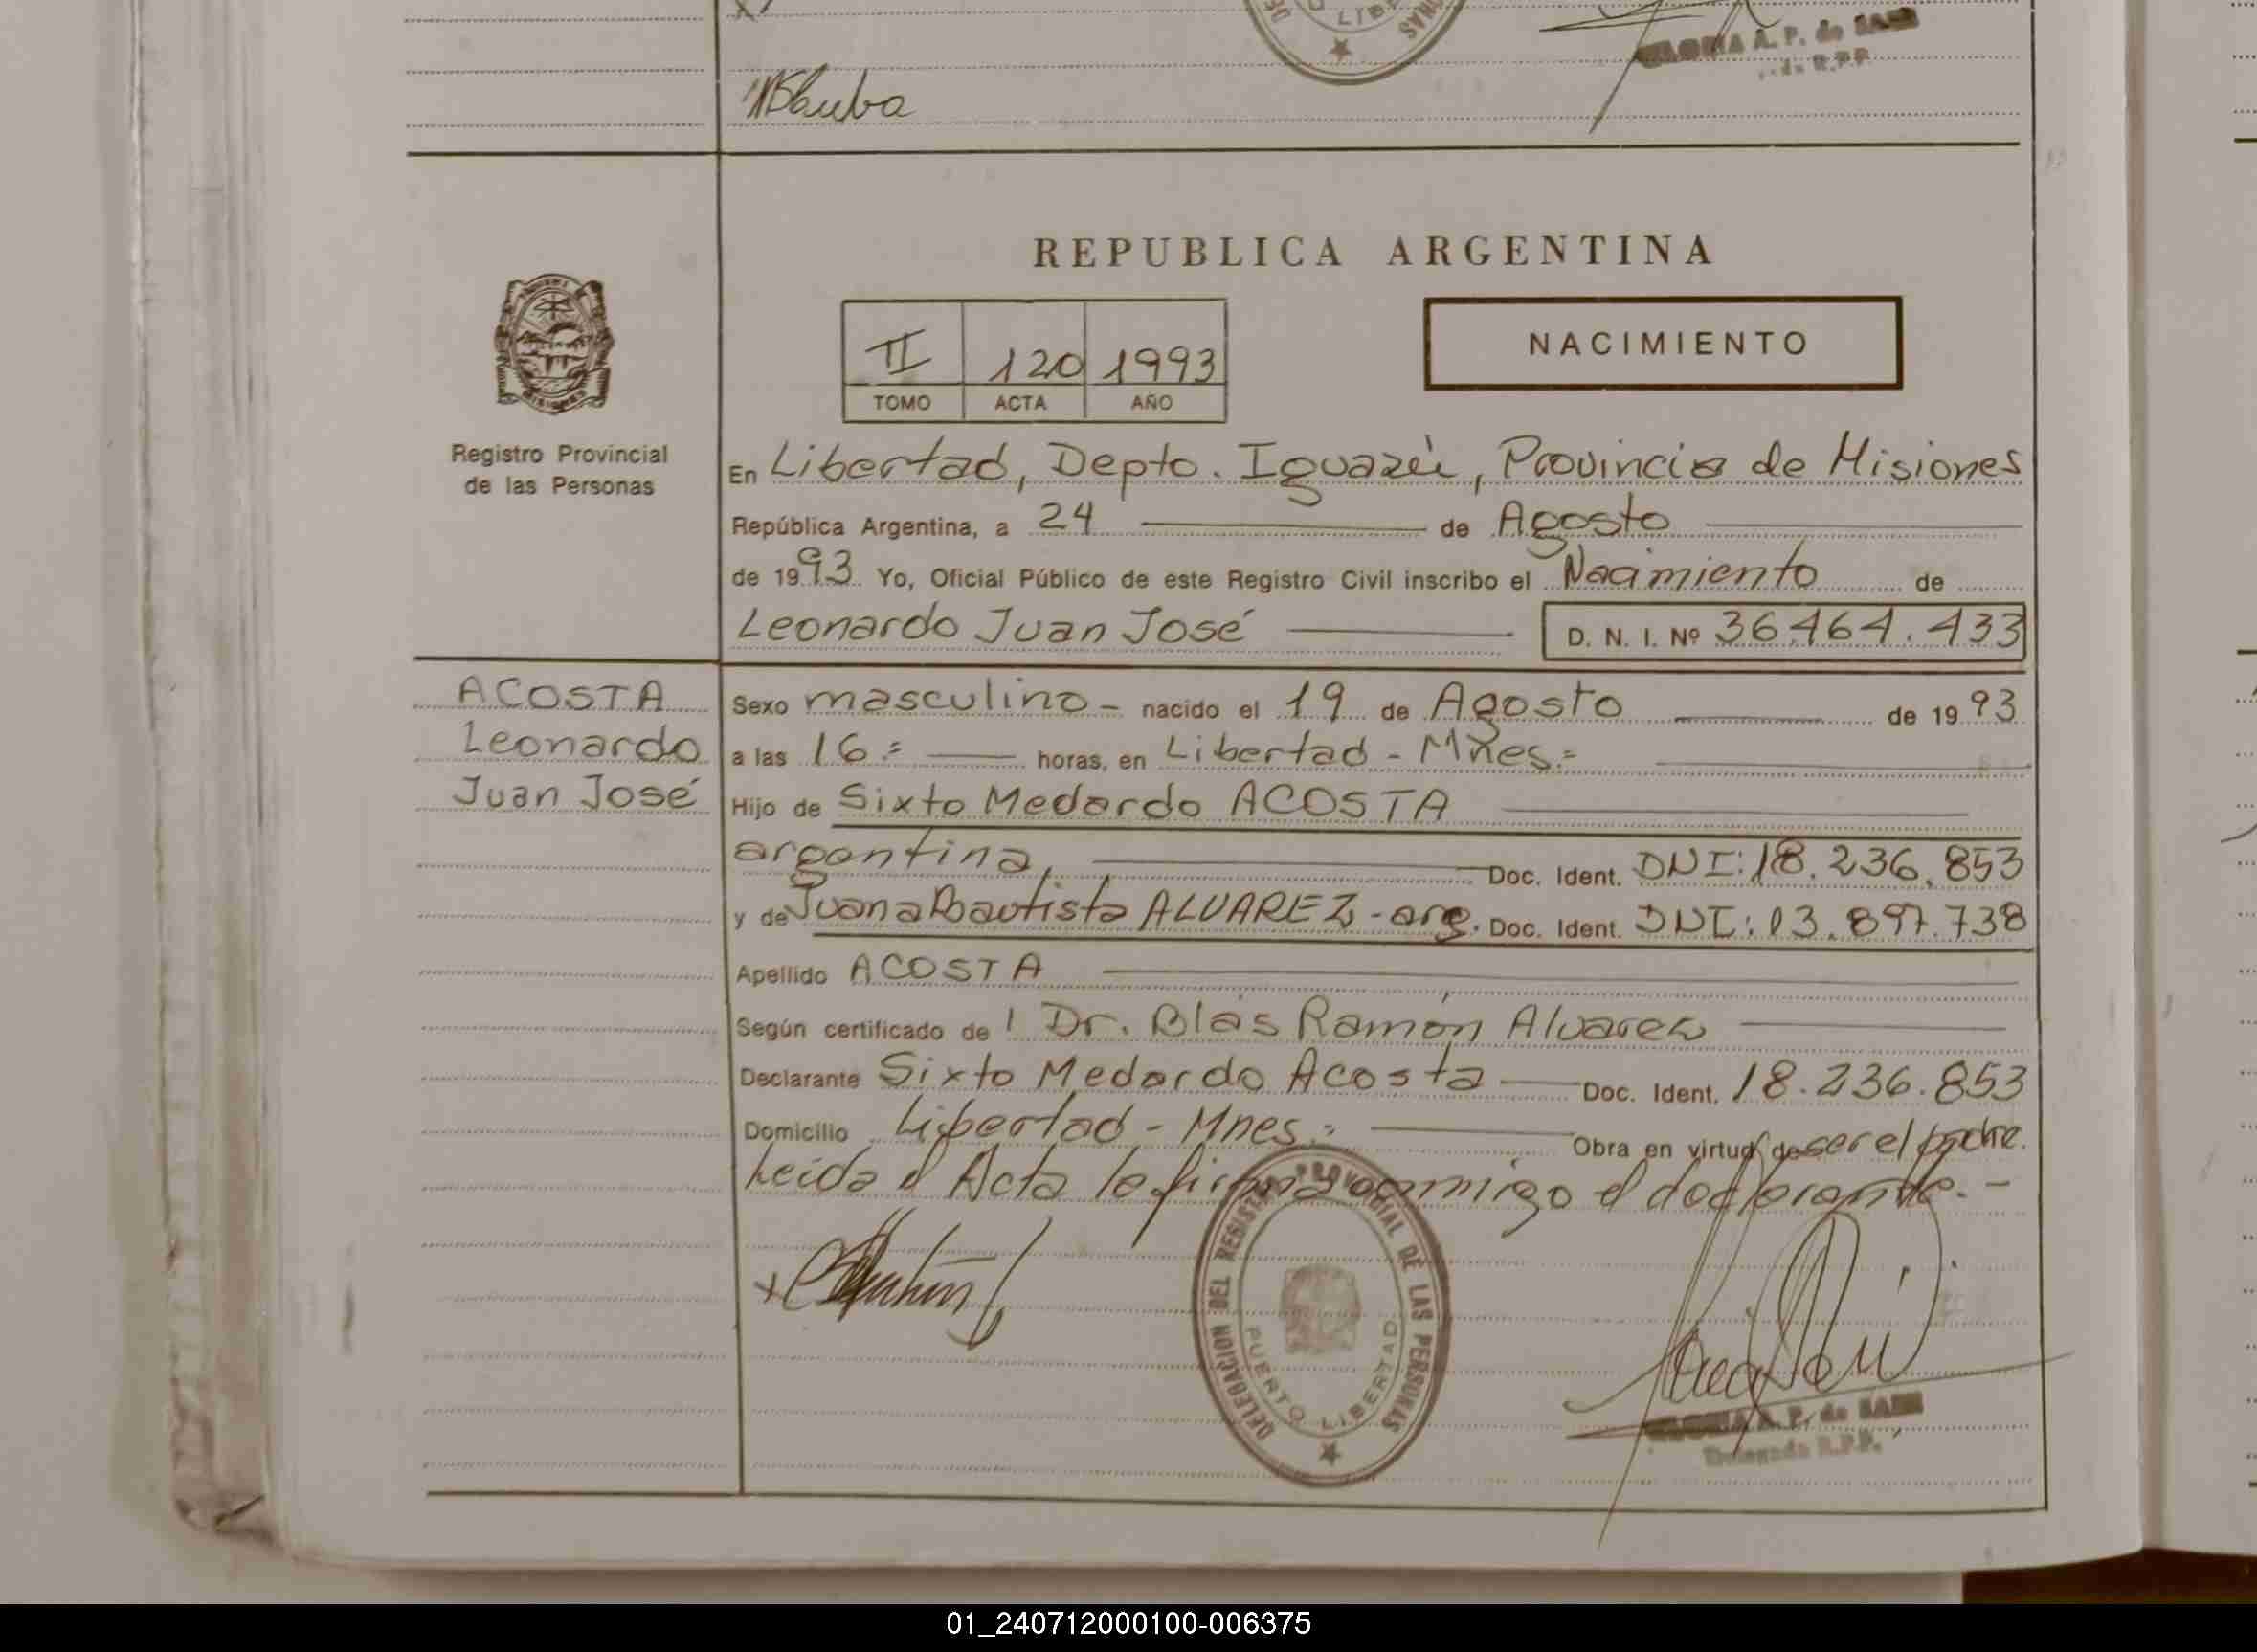 LIB
A. P. de SAER
R.P.P.
REPUBLICA ARGENTINA
II 120 1993
TOMO ACTA AÑO
NACIMIENTO
MISIONES
Registro Provincial
de las Personas
En Libertad, Depto. Iguazú, Provincia de Misiones
República Argentina, a 24 de Agosto
de 1993 Yo, Oficial Público de este Registro Civil inscribo el Nacimiento de
Leonardo Juan José D. N. I. Nº 36.464.433
ACOSTA
Leonardo
Juan José
Sexo masculino - nacido el 19 de Agosto de 1993
a las 16.= horas, en Libertad - Mnes.=
Hijo de Sixto Medardo ACOSTA
argentina, Doc. Ident. DNI: 18.236.853
y de Juana Bautista ALVAREZ - arg. Doc. Ident. DNI: 13.897.738
Apellido ACOSTA
Según certificado de l Dr. Blás Ramón Alvarez
Declarante Sixto Medardo Acosta Doc. Ident. 18.236.853
Domicilio Libertad - Mnes.= Obra en virtud de ser el padre.
Leida el Acta la firma conmigo el declarante. -
DELEGACION DEL REGISTRO PROVINCIAL DE LAS PERSONAS
PUERTO LIBERTAD
A. P. de SAER
Delegada R.P.P.
01_240712000100-006375